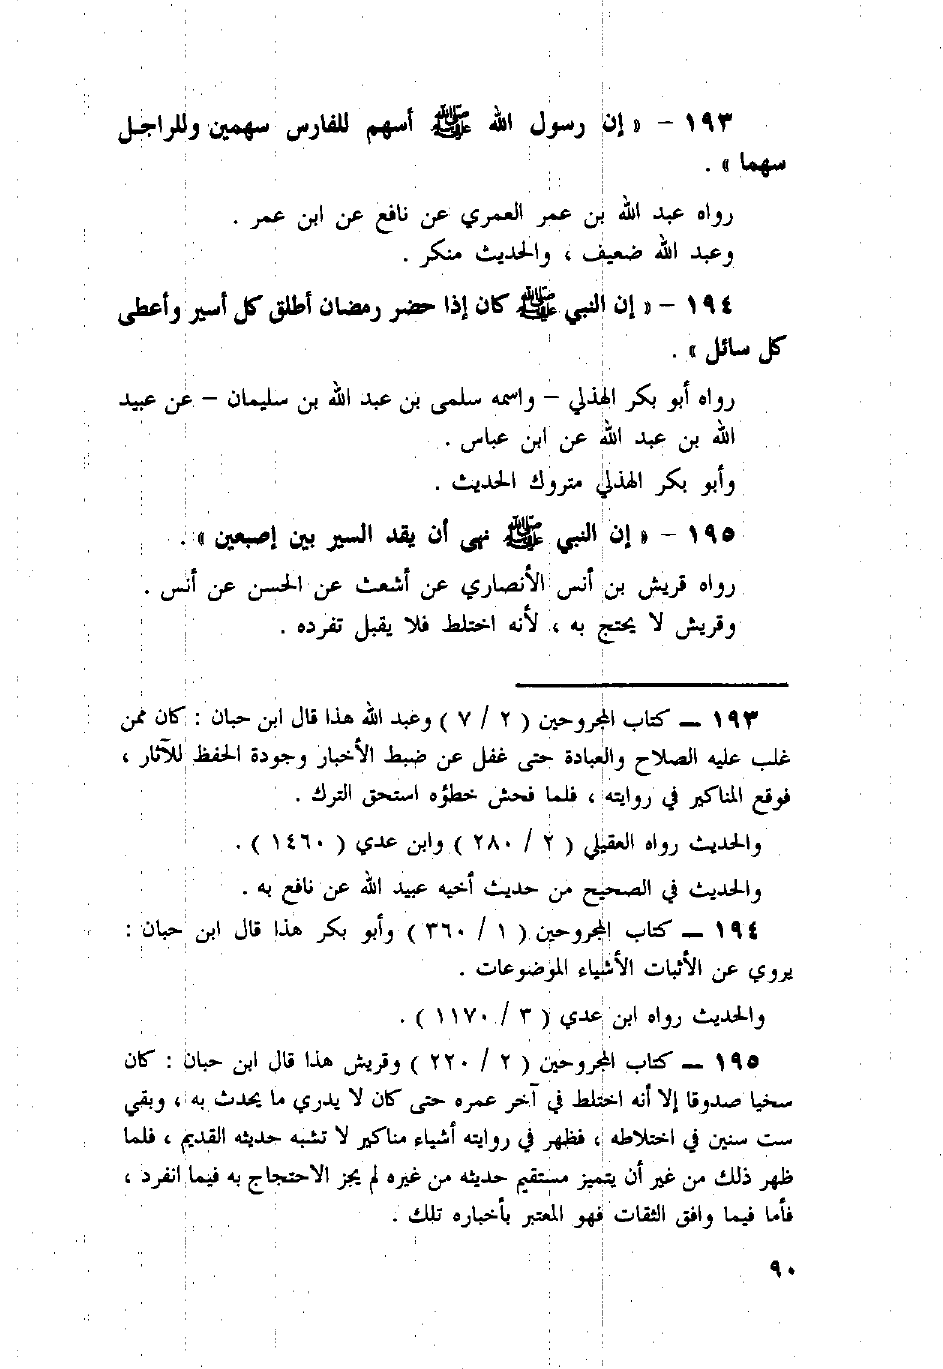 ١٩٣ – « إن رسول الله ﷺ أسهم للفارس سهمين وللراجل
سهما » .
رواه عبد الله بن عمر العمري عن نافع عن ابن عمر .
وعبد الله ضعيف ، والحديث منكر .
١٩٤ – « إن النبي ﷺ كان إذا حضر رمضان أطلق كل أسير وأعطى
كل سائل » .
رواه أبو بكر الهذلي – واسمه سلمى بن عبد الله بن سليمان – عن عبيد
الله بن عبد الله عن ابن عباس .
وأبو بكر الهذلي متروك الحديث .
١٩٥ – « إن النبي ﷺ نهى أن يقد السير بين إصبعين » .
رواه قريش بن أنس الأنصاري عن أشعث عن الحسن عن أنس .
وقريش لا يحتج به ، لأنه اختلط فلا يقبل تفرده .
١٩٣ ــ كتاب المجروحين ( ٢ / ٧ ) وعبد الله هذا قال ابن حبان : كان ممن
غلب عليه الصلاح والعبادة حتى غفل عن ضبط الأخبار وجودة الحفظ للآثار ،
فوقع المناكير في روايته ، فلما فحش خطؤه استحق الترك .
والحديث رواه العقيلي ( ٢ / ٢٨٠ ) وابن عدي ( ١٤٦٠ ) .
والحديث في الصحيح من حديث أخيه عبيد الله عن نافع به .
١٩٤ ــ كتاب المجروحين ( ١ / ٣٦٠ ) وأبو بكر هذا قال ابن حبان :
يروي عن الأثبات الأشياء الموضوعات .
والحديث رواه ابن عدي ( ٣ / ١١٧٠ ) .
١٩٥ ــ كتاب المجروحين ( ٢ / ٢٢٠ ) وقريش هذا قال ابن حبان : كان
سخيا صدوقا إلا أنه اختلط في آخر عمره حتى كان لا يدري ما يحدث به ، وبقي
ست سنين في اختلاطه ، فظهر في روايته أشياء مناكير لا تشبه حديثه القديم ، فلما
ظهر ذلك من غير أن يتميز مستقيم حديثه من غيره لم يجز الاحتجاج به فيما انفرد ،
فأما فيما وافق الثقات فهو المعتبر بأخباره تلك .
٩٠